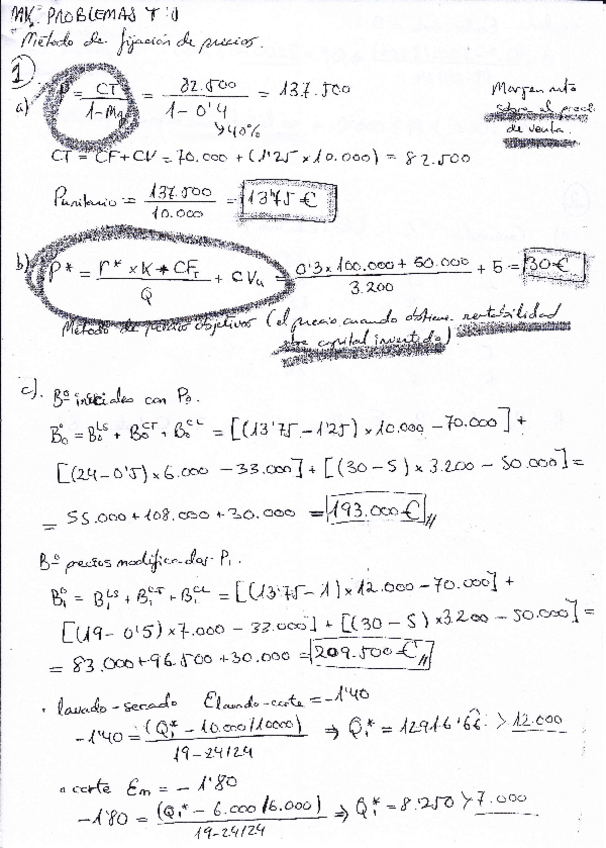 MK PROBLEMAS T:
Método de fijación de precios.
1
a) P = CT / 1-Mg = 82.500 / 1-0'4 = 137.500
↘40%
Margen neto
sobre el precio
de venta.
CT = CF+CV = 70.000 + (1'25 × 10.000) = 82.500
Punitario = 137.500 / 10.000 = 13'75€
b) P* = r* × K + CFT / Q + CVu = 0'3×100.000 + 50.000 / 3.200 + 5 = 30€
Método de precios objetivos (el precio cuando obtiene rentabilidad
sobre capital invertido)
c). Bº iniciales con P0.
Bº0 = B0LS + B0CT + B0CL = [(13'75 - 1'25) × 10.000 - 70.000] +
[(24-0'5) × 6.000 - 33.000] + [(30-5) × 3.200 - 50.000] =
= 55.000 + 108.000 + 30.000 = 193.000€//
Bº precios modificados P1.
Bº1 = B1LS + B1CT + B1CL = [(13'75 - 1) × 12.000 - 70.000] +
[(19-0'5) × 7.000 - 33.000] + [(30-5) × 3.200 - 50.000] =
= 83.000 + 96.500 + 30.000 = 209.500€//
· lavado-secado Elavado-corte = -1'40
-1'40 = (Q1* - 10.000/10000) / 19-24/24 ⇒ Q1* = 12916'66 > 12.000
corte Em = -1'80
-1'80 = (Q1* - 6.000/6.000) / 19-24/24 ⇒ Q1* = 8.250 > 7.000